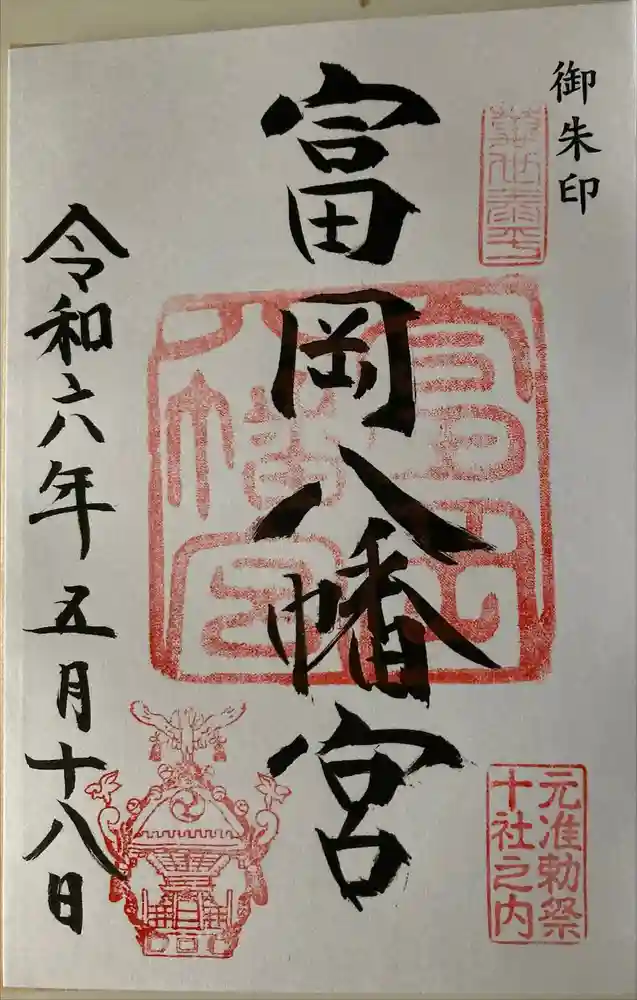 御朱印
富岡八幡宮
富岡八幡宮
元准勅祭
十社之内
令和六年五月十八日